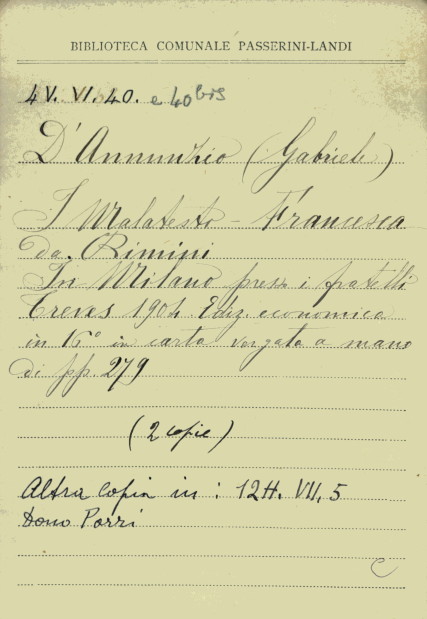 BIBLIOTECA COMUNALE PASSERINI-LANDI
4V. VI. 40. e 40 bis
D'Annunzio (Gabriele)
I Malatesta - Francesca
da Rimini
In Milano presso i fratelli
Treves 1904 Ediz. economica
in 16° in carta vergata a mano
di pp. 279
(2 copie)
Altra copia in: 12H. VII, 5
Dono Porri
C